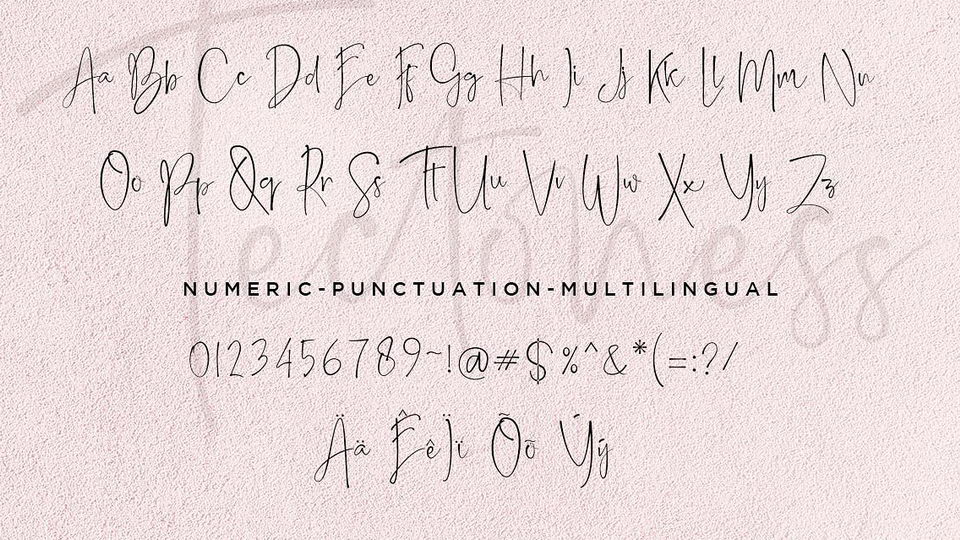 Aa Bb Cc Dd Ee Ff Gg Hh Ii Jj Kk Ll Mm Nn
Oo Pp Qq Rr Ss Tt Uu Vv Ww Xx Yy Zz
Tectoness
NUMERIC-PUNCTUATION-MULTILINGUAL
0123456789~!@#$%^&*(=:?/
Ää Êê Ïï Õõ Ýý